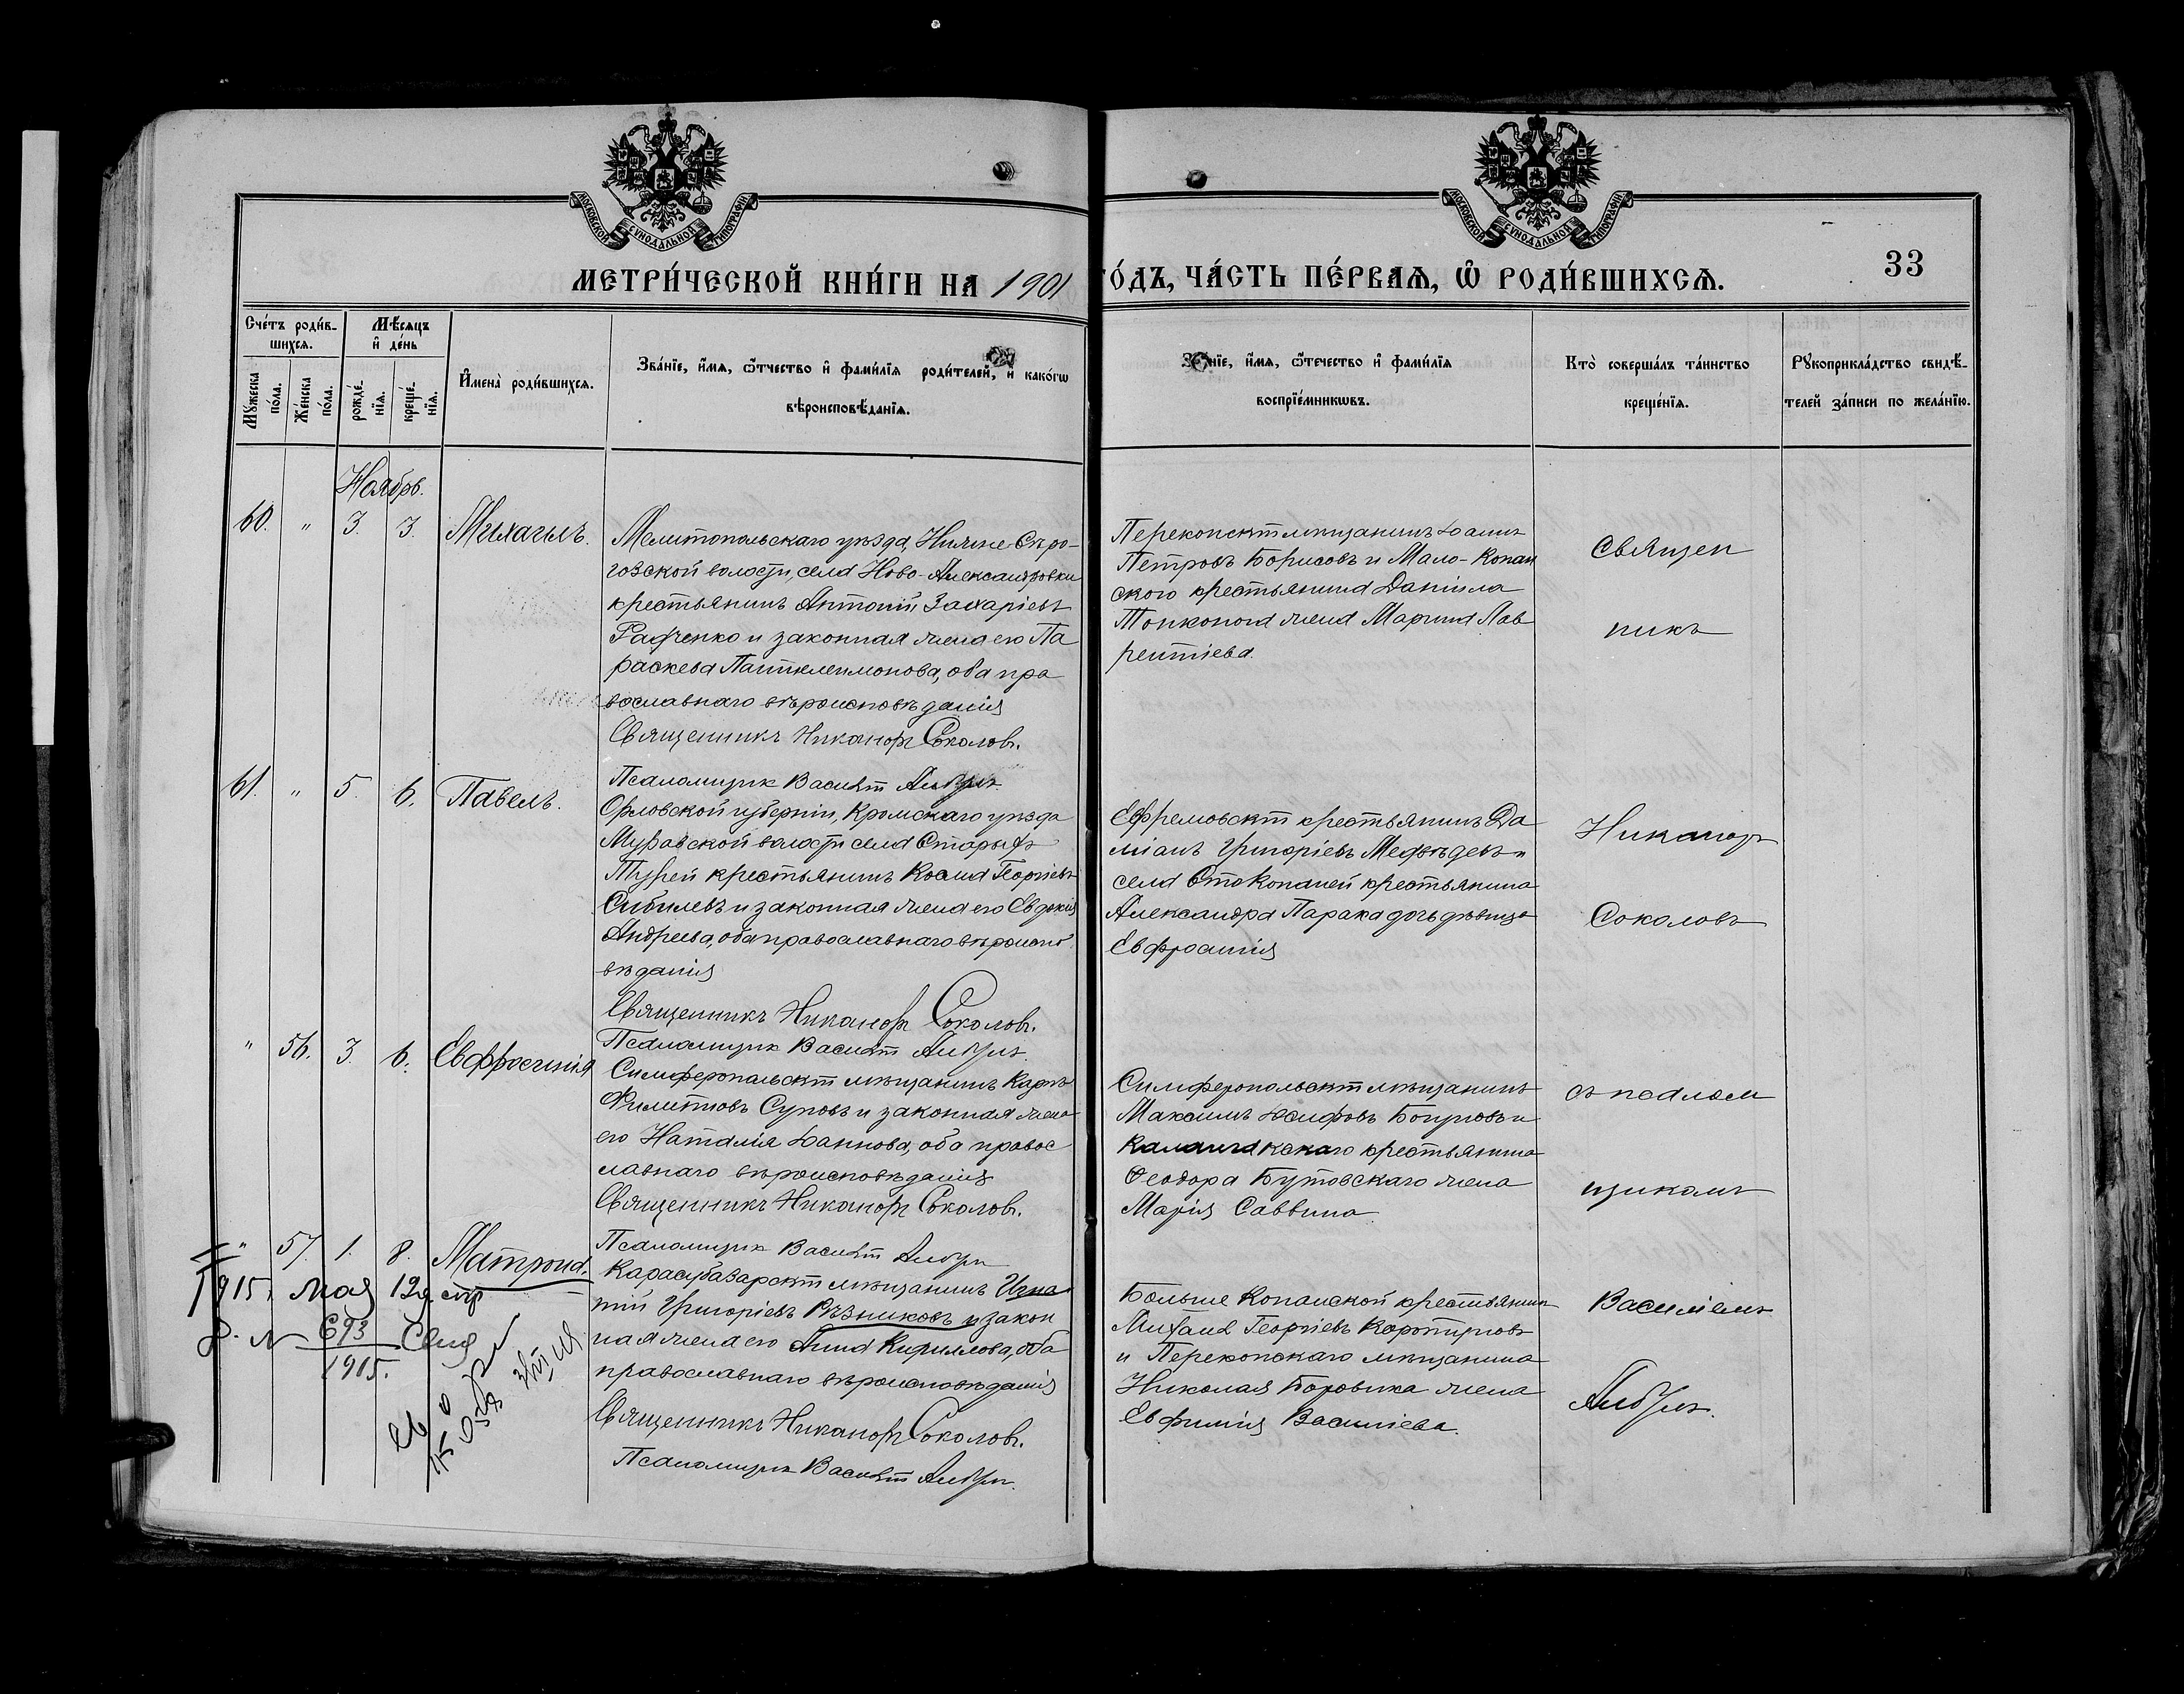 МОСКОВСКОЙ СѴНОДАЛЬНОЙ ТИПОГРАФІИ
МОСКОВСКОЙ СѴНОДАЛЬНОЙ ТИПОГРАФІИ
МЕТРИ́ЧЕСКОЙ КНИ́ГИ НА 1901
ГО́ДЪ, ЧА́СТЬ ПЕ́РВАѦ, Ѡ҆ РОДИ́ВШИХСѦ.
33
Сче́тъ роди́в-
шихсѧ.
Мѣ́сѧцъ
и҆ де́нь
Мꙋ́жеска
по́ла.
Же́нска
по́ла.
рожде́-
нїѧ.
креще́-
нїѧ.
И҆мена̀ роди́вшихсѧ.
Зва́нїе, и҆́мѧ, ѻ҆́тчество и҆ фами́лїѧ роди́телей, и҆ како́гѡ
вѣроисповѣ́данїѧ.
нїе, и҆́мѧ, ѻ҆́течество и҆ фами́лїѧ
воспрїе́мникѡвъ.
Кто̀ соверша́лъ та́инство
креще́нїѧ.
Рꙋкоприкла́дство свидѣ́-
телей за́писи по жела́нїю.
Ноябрь.
60. " 3. 3. Михаилъ.
Мелитопольскаго уѣзда, Нижне-Сѣро-
гозской волости, села Ново-Александровки
крестьянинъ Антоній Захаріевъ
Радченко и законная жена его Па
раскева Пантелеимонова, оба пра
вославнаго вѣроисповѣданія
Священникъ Никаноръ Соколовъ.
Псаломщикъ Василій
Перекопскій мѣщанинъ Іоаннъ
Петровъ Борисовъ и Мало-Копан
ского крестьянина Даніила
Тонконога жена Марина Лав
рентіева.
Священ
никъ
61. " 5. 6. Павелъ.
Орловской губерніи, Кромскаго уѣзда
волости села Старыхъ
крестьянинъ Косма Георгіевъ
и законная жена его Евдокія
Андреева, оба православнаго вѣроиспо
вѣданія
Священникъ Никаноръ Соколовъ.
Псаломщикъ Василій
Ефремовскій крестьянинъ Да
міанъ Григоріевъ Медвѣдевъ и
села крестьянина
Александра дочь дѣвица
Евфросинія
Никаноръ
Соколовъ
" 56. 3. 6. Евффросинія
Симферопольскій мѣщанинъ
Филипповъ Суповъ и законная жена
его Наталія Іоаннова, оба правос
лавнаго вѣроисповѣданія
Священникъ Никаноръ Соколовъ.
Псаломщикъ Василій
Симферопольскій мѣщанинъ
Максимъ Іосифовъ и
Каланчакскаго крестьянина
Ѳеодора Бутовскаго жена
Марія Саввина
съ псалом
щикомъ
" 57. 1. 8. Матрона.
Карасубазарскій мѣщанинъ Игна
тій Григоріевъ Рѣзниковъ и закон
ная жена его Анна Кириллова, оба
православнаго вѣроисповѣданія
Священникъ Никаноръ Соколовъ.
Псаломщикъ Василій
Больше Копанской крестьянинъ
Михаилъ Георгіевъ
и Перекопскаго мѣщанина
Николая Боровика жена
Евфимія Василіева.
Василіемъ
1915. мая 12д.
№ 693
1915.